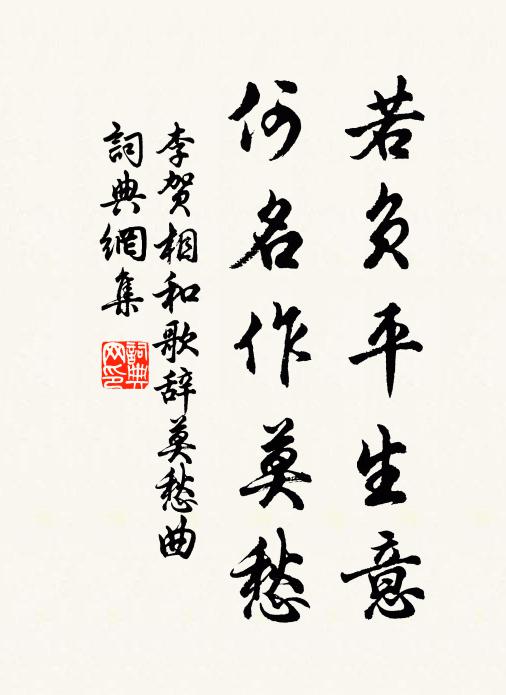 若负平生意
何名作莫愁
李贺相和歌辞莫愁曲
詞典網集
詞典网印